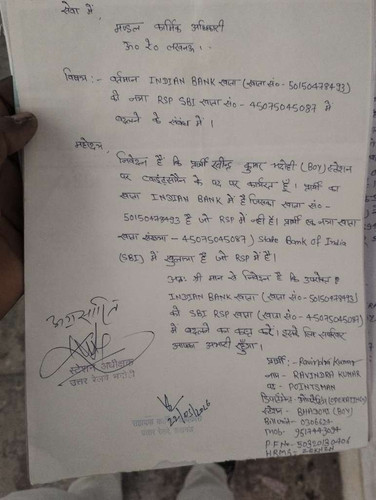 सेवा में,
मण्डल कार्मिक अधिकारी
उ० रे० लखनऊ।
विषय:- वर्तमान INDIAN BANK खाता (खाता सं० - 50150478493)
को नया RSP SBI खाता सं० - 45075045087 में
बदलने के संबंध में।
महोदय,
निवेदन है कि प्रार्थी रवीन्द्र कुमार भदोही (BOY) स्टेशन
पर प्वाइंट्समैन के पद पर कार्यरत हूँ। प्रार्थी का
खाता INDIAN BANK में है जिसका खाता सं० -
50150478493 है जो RSP में नही है। प्रार्थी नया खाता
खाता संख्या - 45075045087) State Bank of India
(SBI) में खुलवाया है जो RSP में है।
अतः श्री मान से निवेदन है कि उपरोक्त
INDIAN BANK खाता (खाता सं० - 50150478493)
को SBI RSP खाता (खाता सं० - 45075045087)
में बदलने का कष्ट करें। इसके लिए प्रार्थी
आपका आभारी रहूँगा।
अग्रसारित
स्टेशन अधीक्षक
उत्तर रेलवे भदोही
22/03/2026
प्रार्थी:- Ravindra Kumar
नाम - RAVINDRA KUMAR
पद - POINTSMAN
(OPERATING)
स्टेशन - BHADOHI (BOY)
Bill unit - 0306624
Mob. - 9517443034
P.F No -
HRMS -